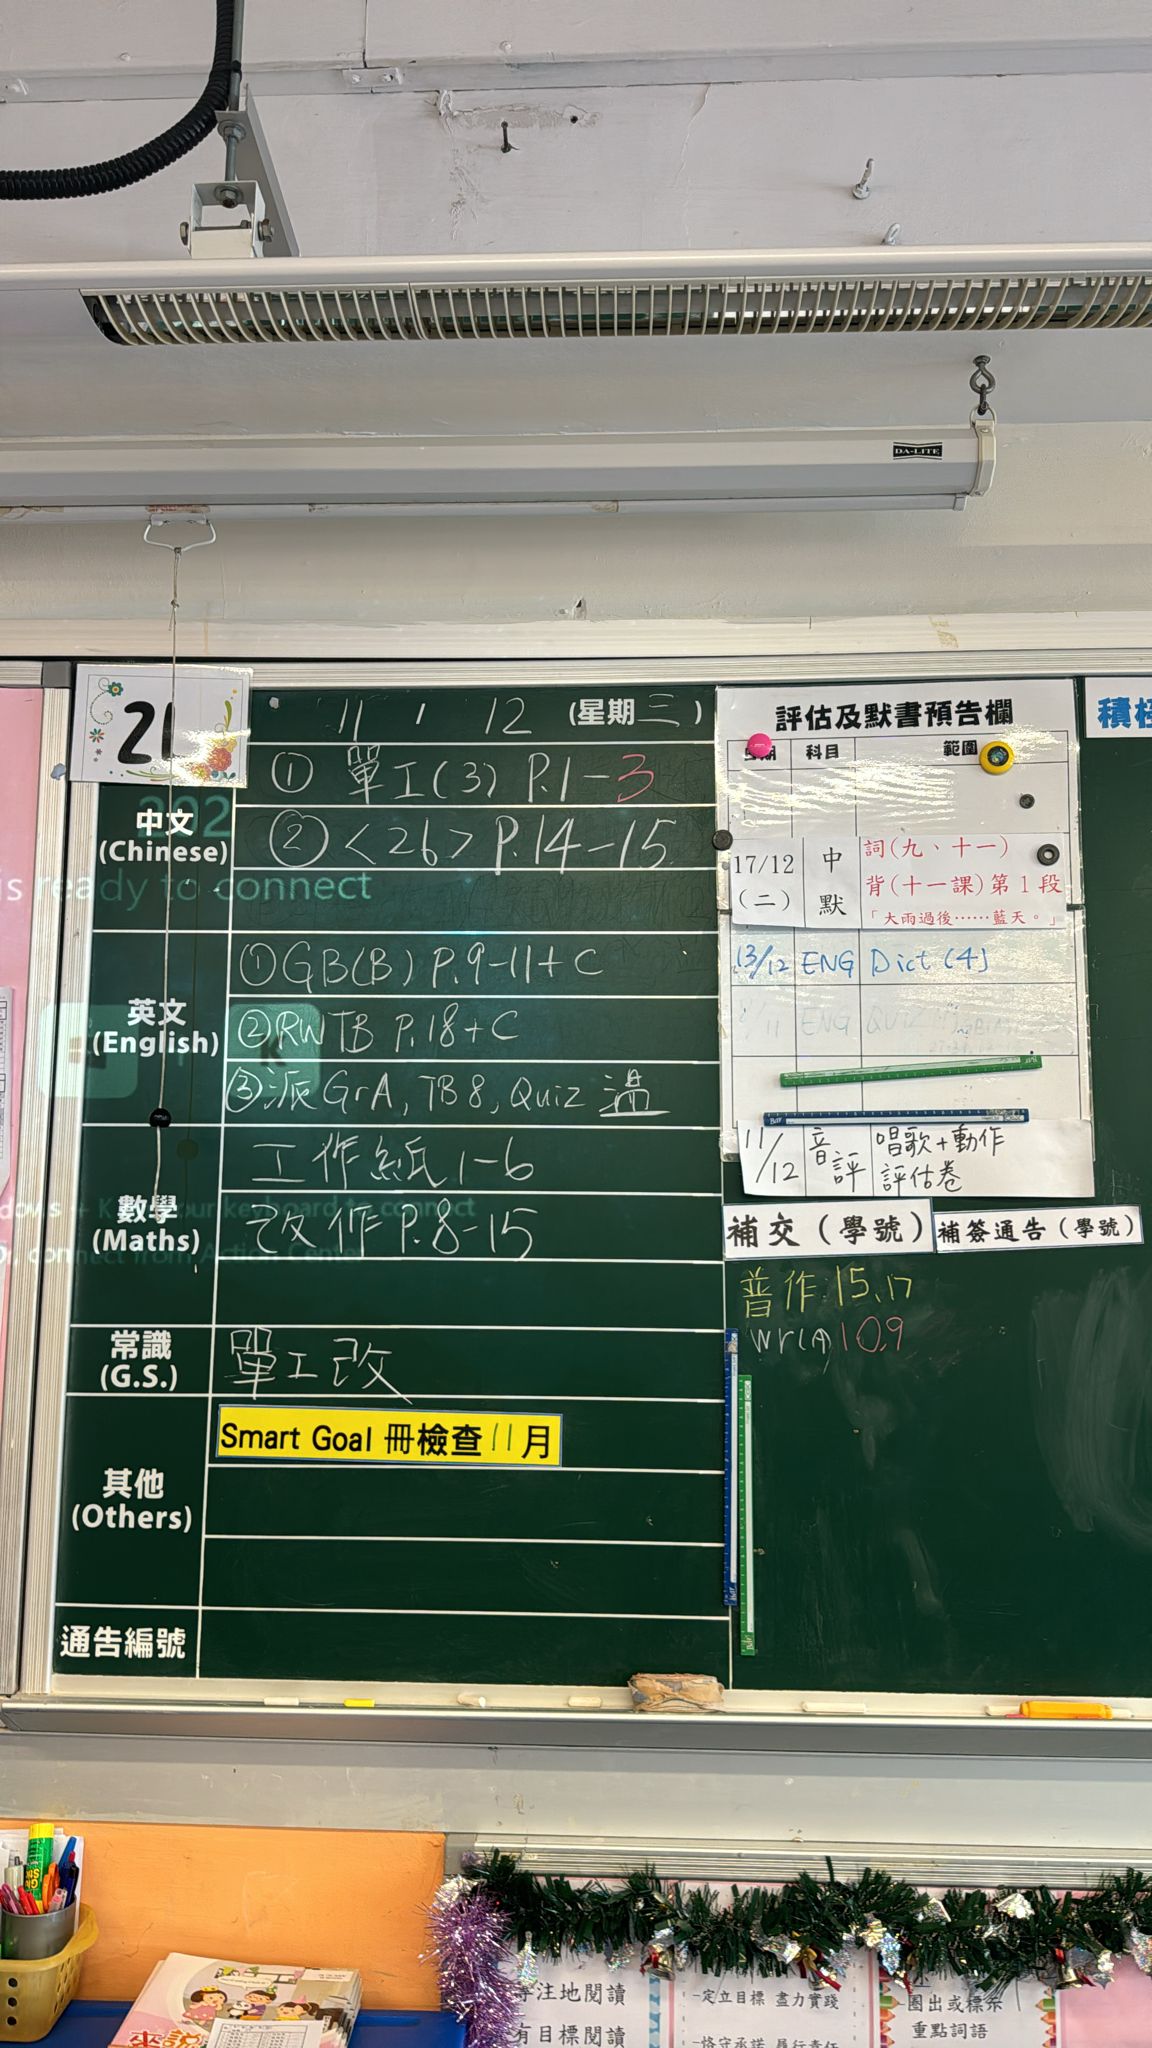 DA-LITE
11 / 12 (星期三)
中文
(Chinese)
① 單工(3) P.1-3
② <26> P.14-15
is ready to connect
英文
(English)
① GB(B) P.9-11+C
② RWTB P.18+C
③ 派 GrA, TB8, Quiz
數學
(Maths)
工作紙 1-6
改作 P.8-15
常識
(G.S.)
單工改
其他
(Others)
Smart Goal 冊檢查 11月
通告編號
評估及默書預告欄
科目 範圍
17/12 (二) 中默 詞(九、十一)
背(十一課)第1段
「大雨過後……藍天。」
13/12 ENG Dict (4)
11/12 音評 唱歌+動作
評估卷
補交(學號) 補簽通告(學號)
普作:15、17
Wr(A) 10、9
注地閱讀
有目標閱讀
定立目標 盡力實踐
恪守承諾 履行責任
圈出或標示
重點詞語